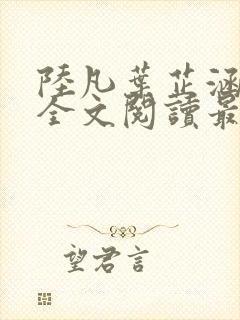 陸凡葉芷涵
全文閱讀最
望君言